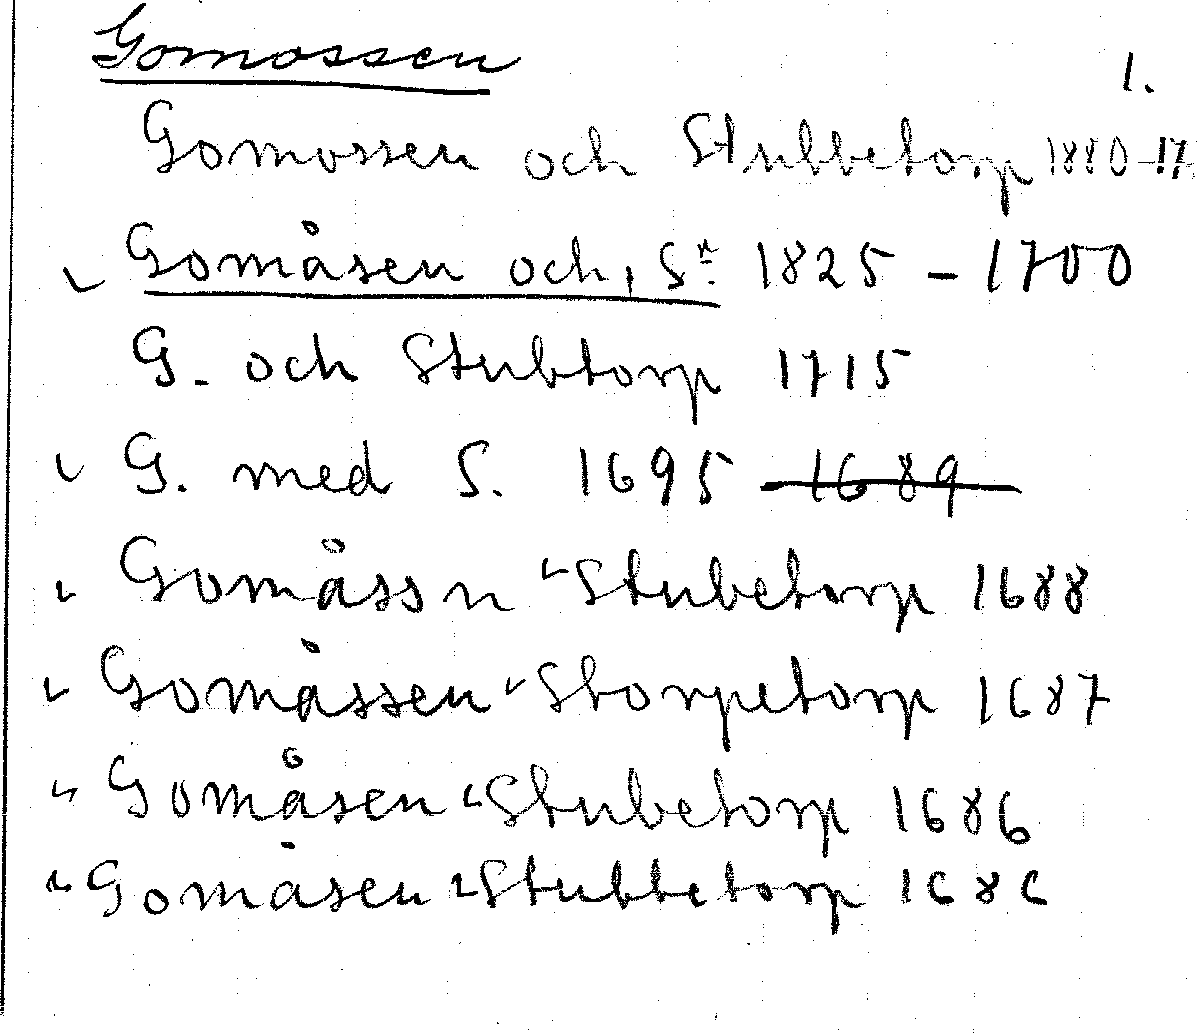 Gomossen
1.
Gomossen och Stubbetorp 1880-17
Gomåsen och, S:n 1825 - 1700
G. och Stubtorp 1715
G. med S. 1695 1689
Gomåssn Stubetorp 1688
Gomåssen Storpetorp 1687
Gomåsen Stubetorp 1686
Gomåsen Stubbetorp 1686